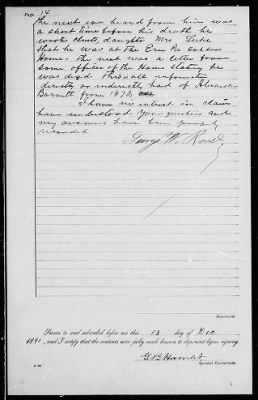 Page 14
The next we heard from him was
a short time before his death he
wrote daughter Mrs
that he was at the
Home. The next was a letter from
some officer of the Home stating he
was dead this is all information
directly or indirectly had of Alexander
Barnett from 1870,
I have no interest in claim
have understood your questions and
my answers have been properly
recorded
George W.
Deponent.
Sworn to and subscribed before me this 13 day of Dec,
1890, and I certify that the contents were fully made known to deponent before signing.
Special Examiner.